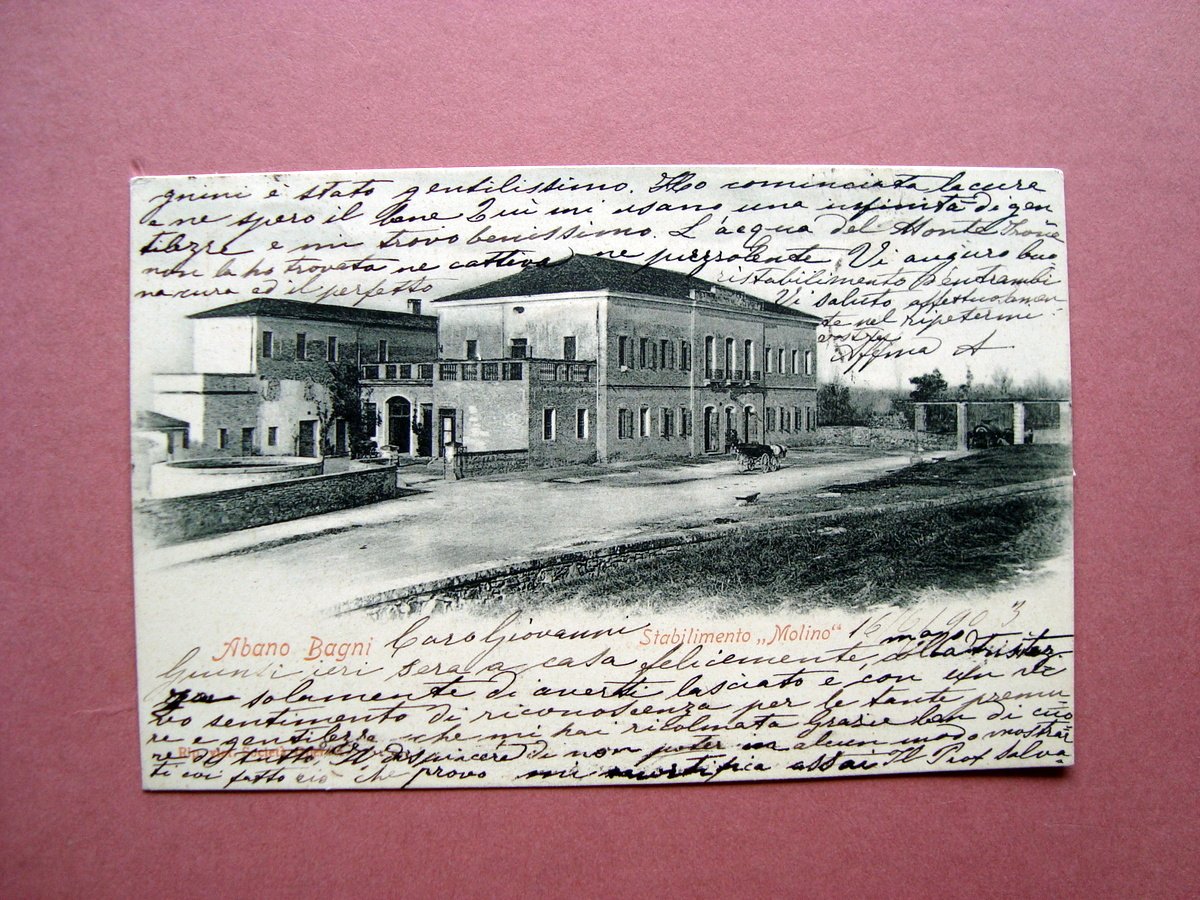 gnini è stato gentilissimo. Ho cominciata la cura
e ne spero il bene Qui mi usano una infinità di gen
tilezze e mi trovo benissimo. L'acqua del Monte Irone
non la ho trovata ne cattiva ne puzzolente Vi auguro buo
na cura ed il perfetto ristabilimento entrambi
Vi saluto affettuosamen
te nel ripetermi
vostra
Affma A
Abano Bagni
Caro Giovanni
Stabilimento „Molino“
16/6/903
Giunsi ieri sera a casa felicemente, colla tristez
za solamente di averti lasciato e con un vi
vo sentimento di riconoscenza per le tante premu
re e gentilezze che mi hai ricolmata Grazie ben di cuo
re di tutto, Il dispiacere di non poter in alcun modo mostrar
ti coi fatto ciò che provo mi mortifica assai Il Prof Salva